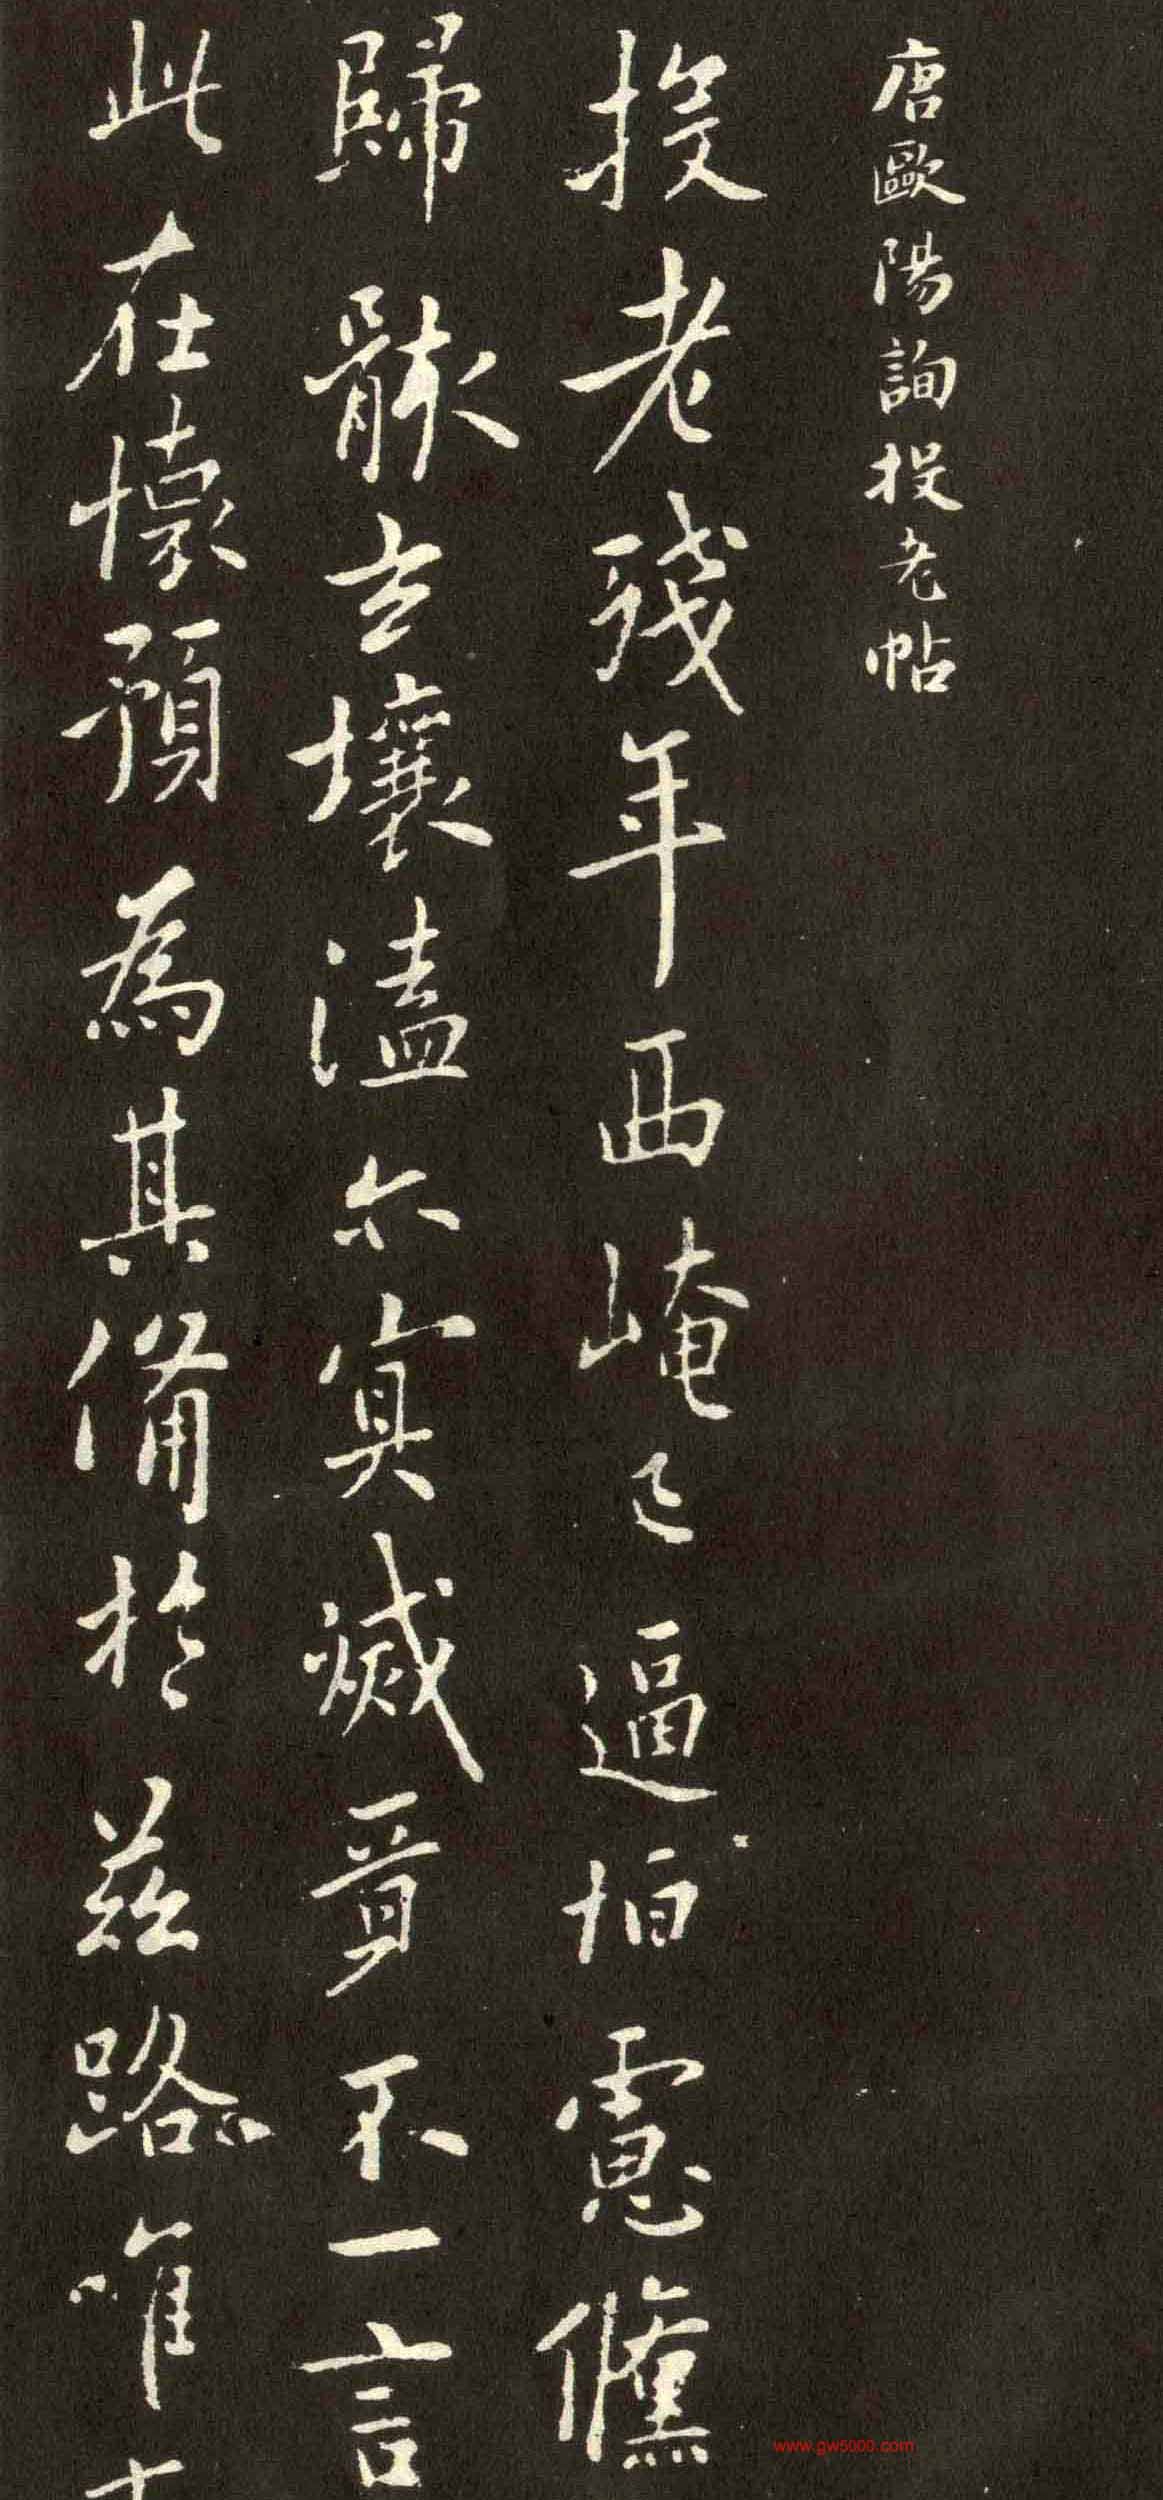 唐歐陽詢投老帖
投老殘年西崦已逼怕慮儻
歸骸玄壤溘尒冥滅晉不一言
此在懷預為其備於茲路唯
www.gw5000.com